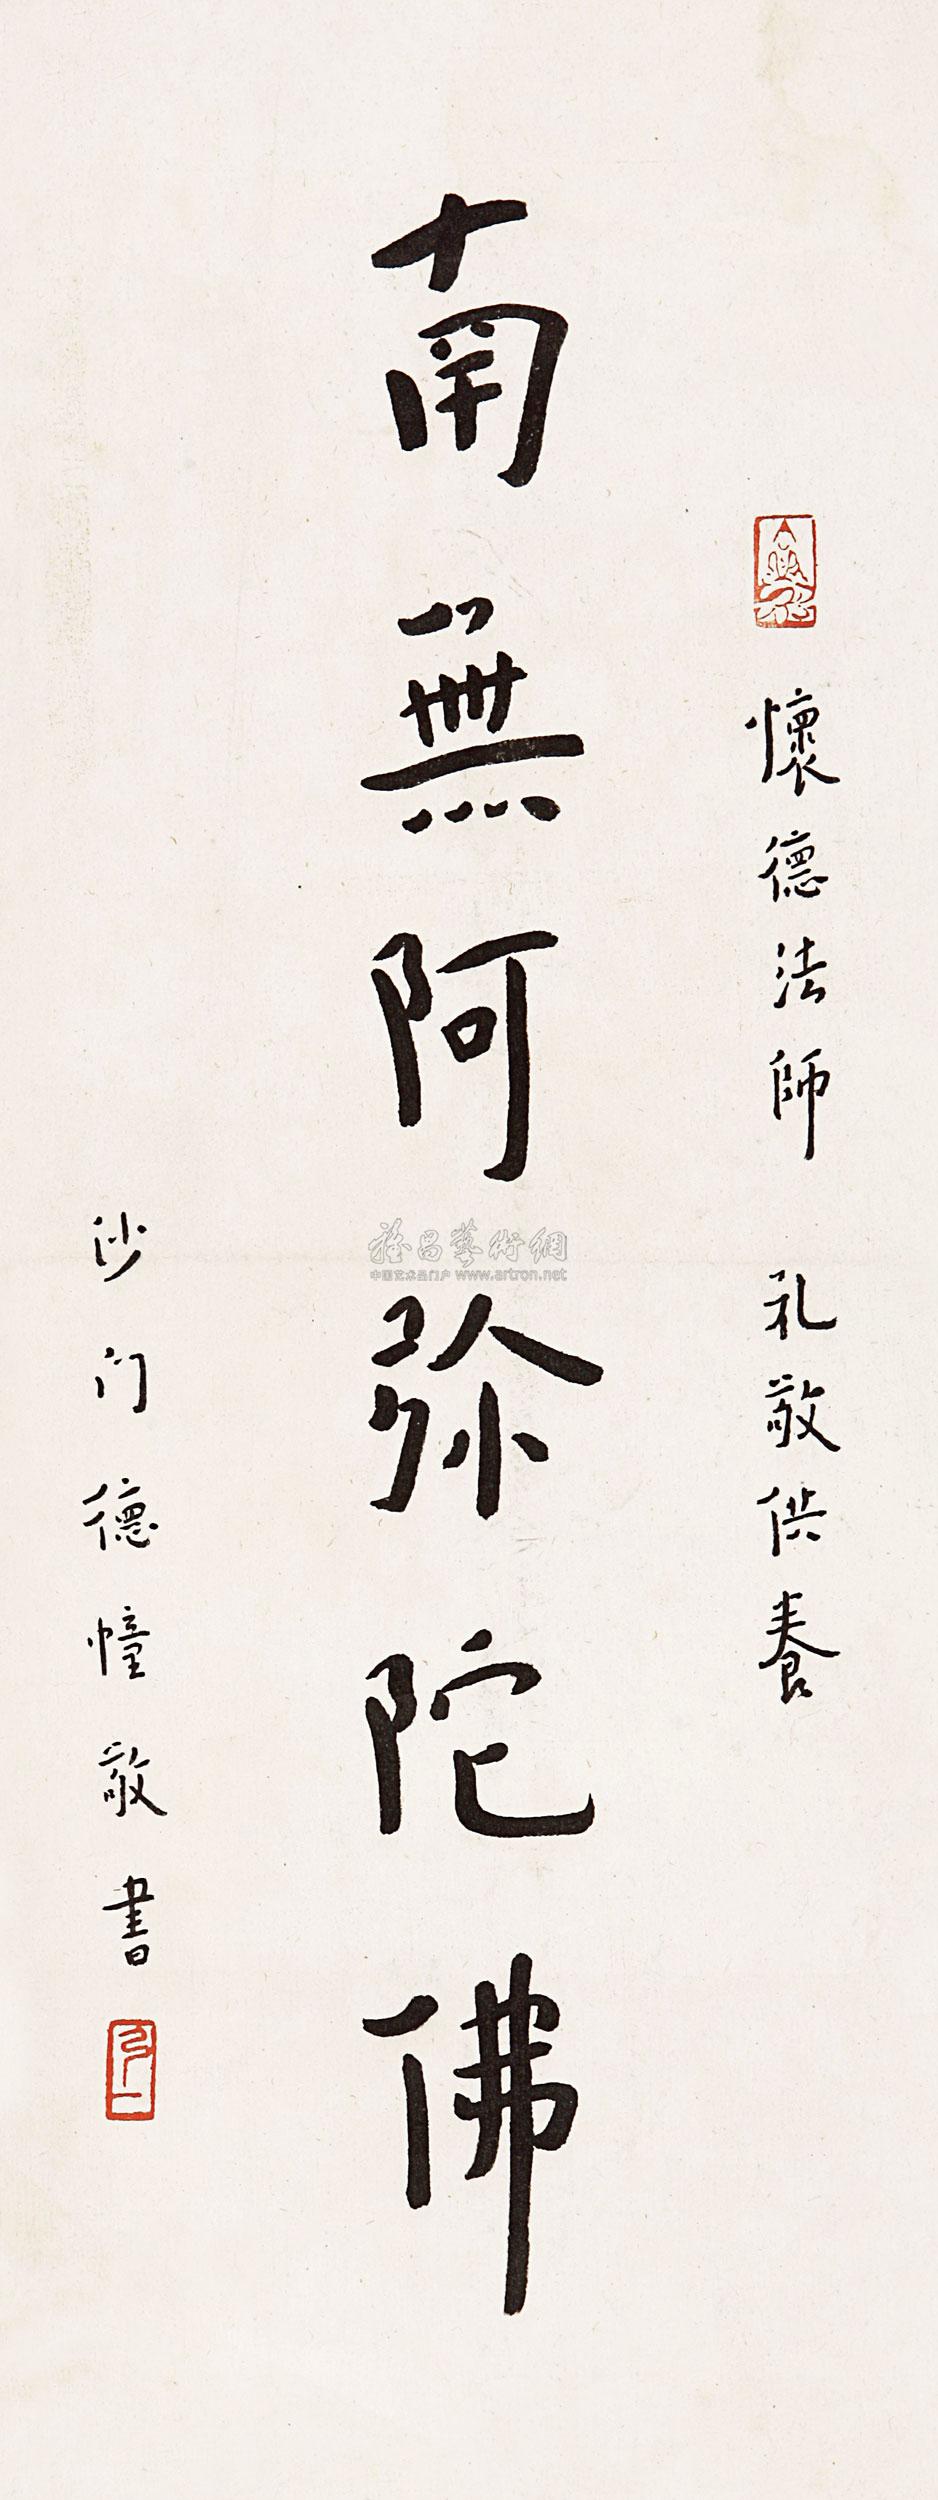 懷德法師 礼敬供養
南無阿弥陀佛
沙门德幢敬書
雅昌藝術網
中国艺术品门户 www.artron.net